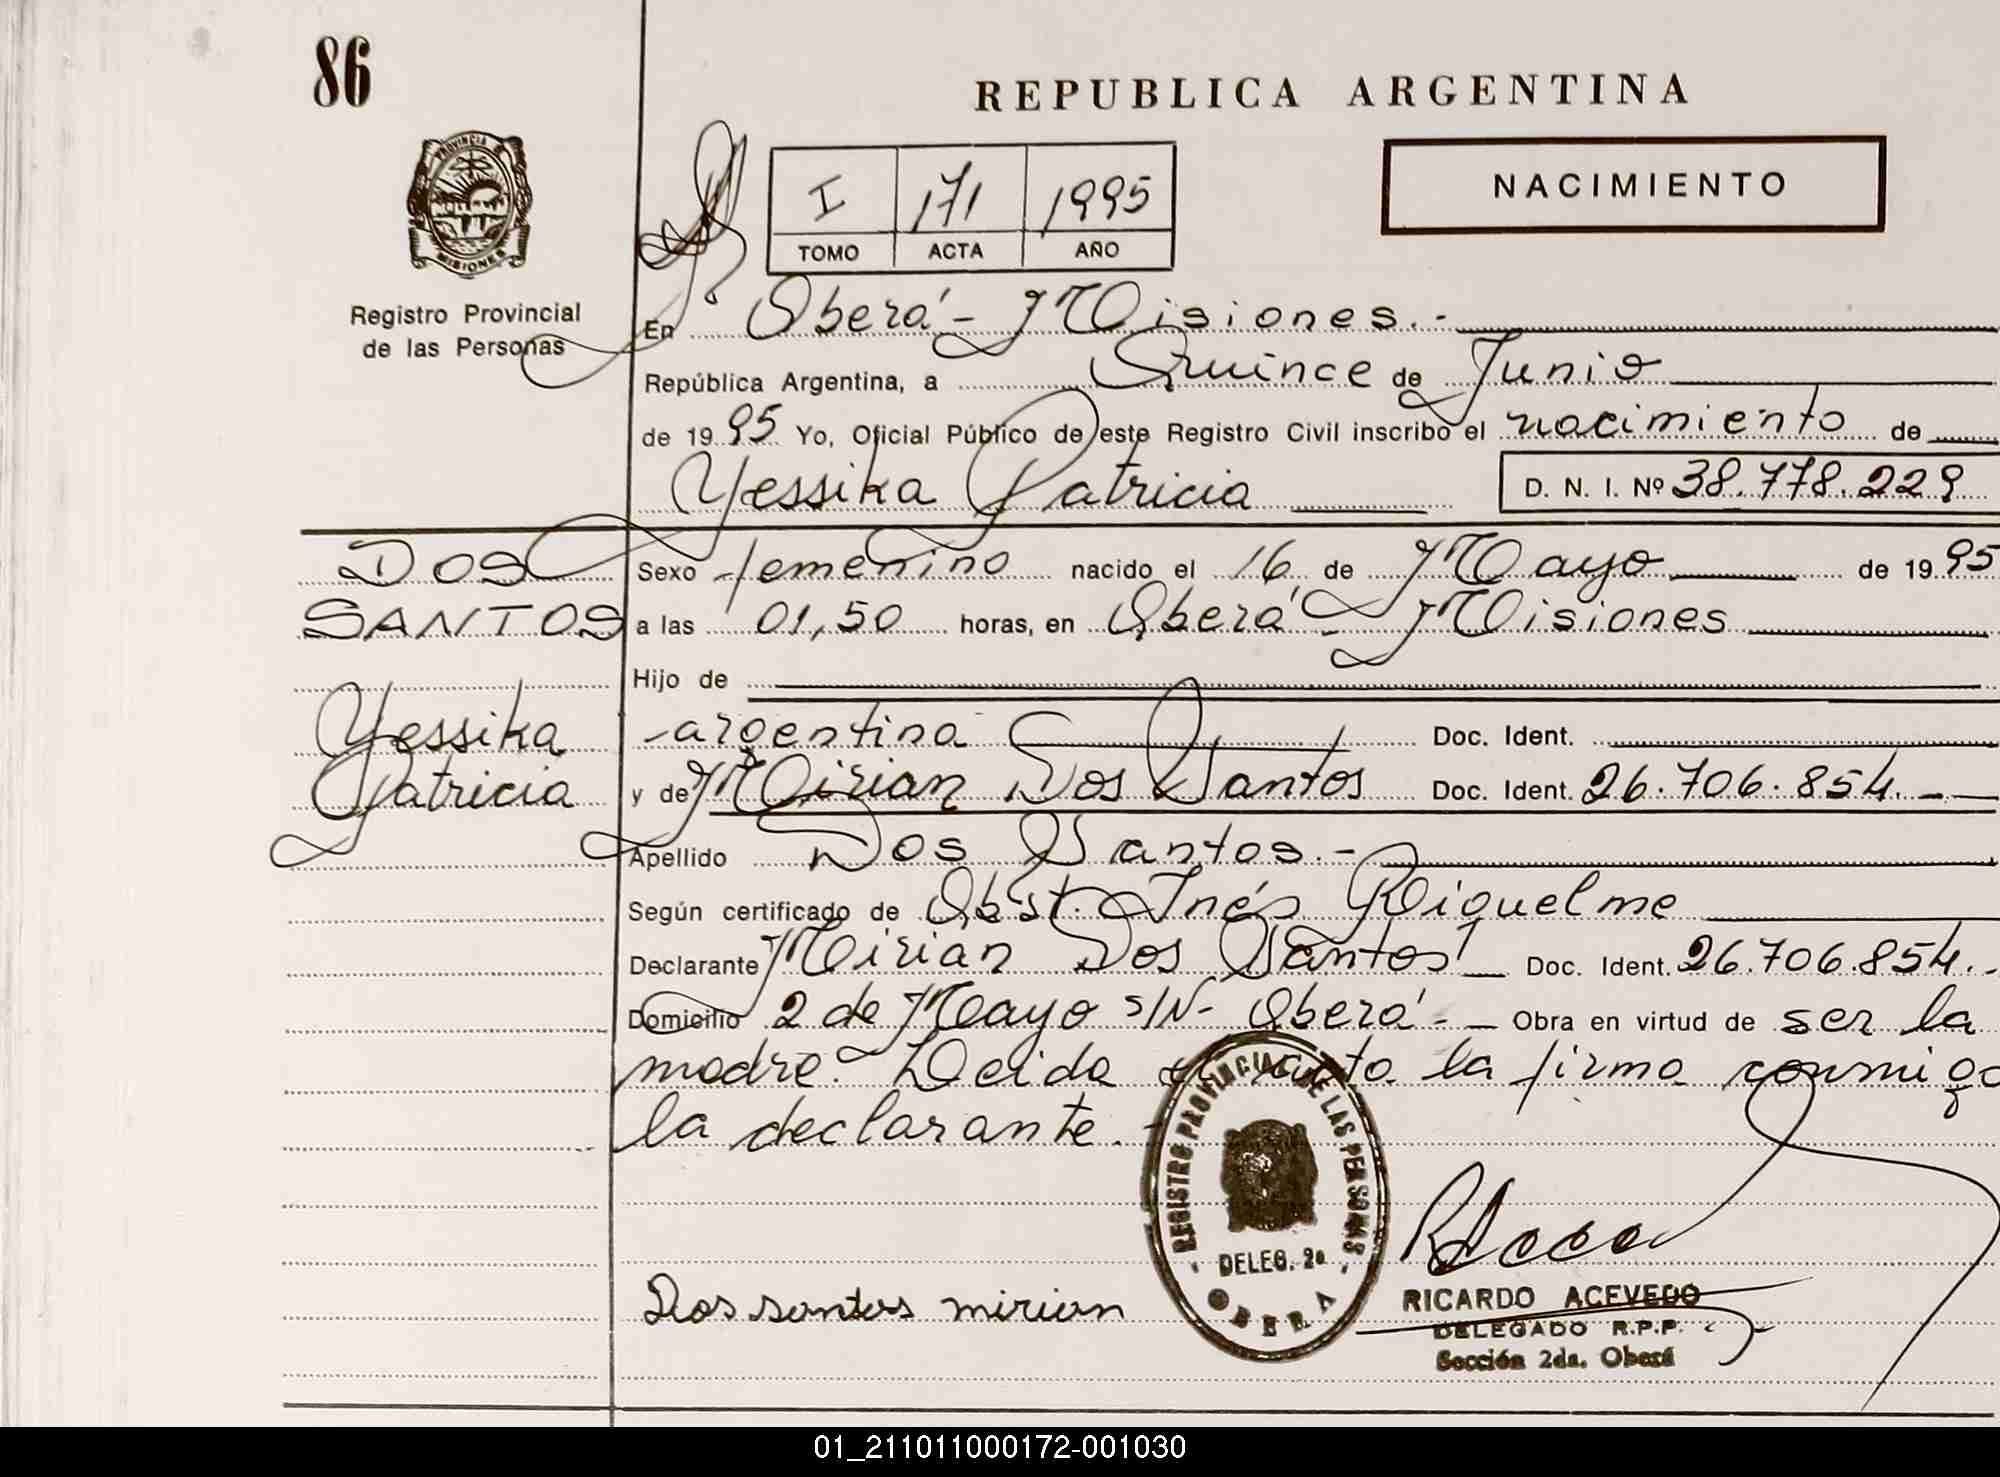 86
REPUBLICA ARGENTINA
PROVINCIA D
MISIONES
NACIMIENTO
I 171 1995
TOMO ACTA AÑO
Registro Provincial
de las Personas
En Oberá - Misiones.-
República Argentina, a Quince de Junio
de 1995 Yo, Oficial Público de este Registro Civil inscribo el nacimiento de
Yessika Patricia D. N. I. Nº 38.778.229
DOS Sexo femenino nacido el 16 de Mayo de 1995
SANTOS a las 01,50 horas, en Oberá - Misiones
Hijo de
Yessika argentina Doc. Ident.
Patricia y de Mirian Dos Santos Doc. Ident. 26.706.854.-
Apellido Dos Santos.-
Según certificado de Obst. Inés Riquelme
Declarante Mirian Dos Santos Doc. Ident. 26.706.854.-
Domicilio 2 de Mayo S/N- Oberá - Obra en virtud de ser la
madre. Leida el acta la firma conmigo
la declarante.-
REGISTRO PROVINCIAL DE LAS PERSONAS
DELEG. 2a
OBERA
Dos santos mirian
RICARDO ACEVEDO
DELEGADO R.P.P.
Sección 2da. Oberá
01_211011000172-001030